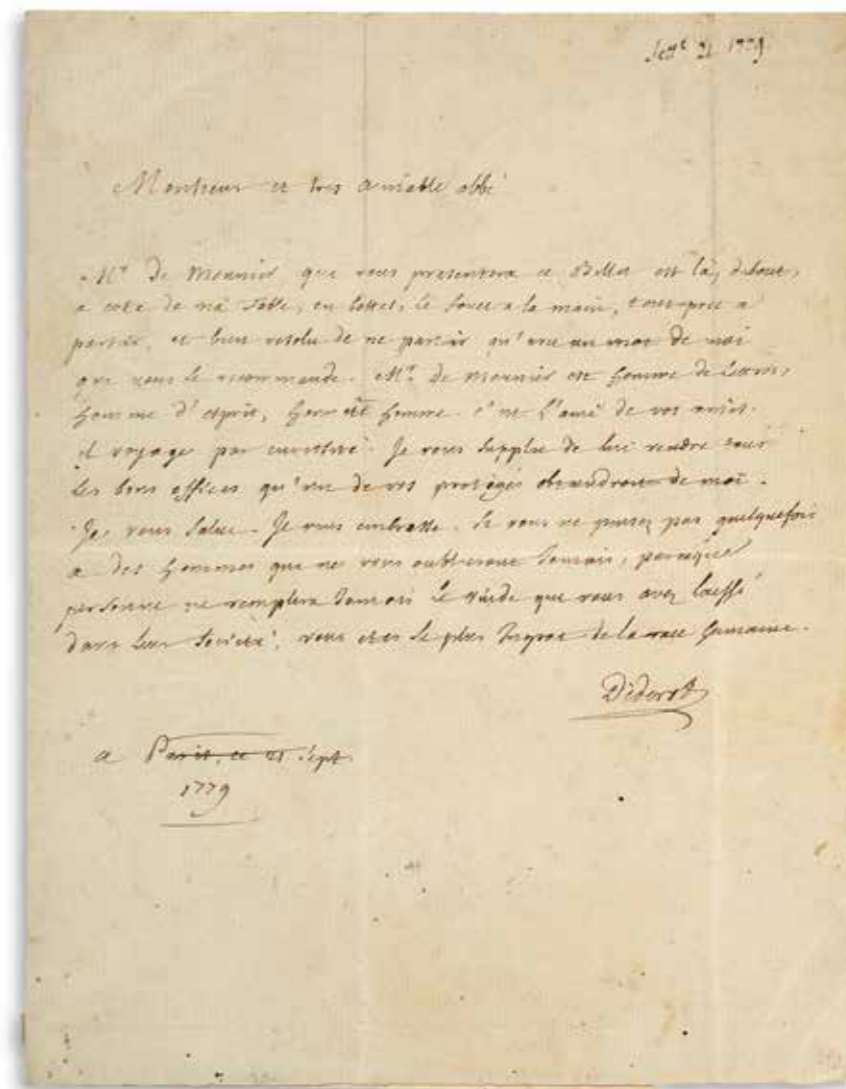 Sept^e 21 1779
Monsieur et tres aimable abbé
Mr De Meunier que vous presentera ce Billet est là, debout,
a coté de ma table, en bottes, le fouet a la main, tout pret a
partir, et bien resolu de ne partir qu'avec un mot de moi
que vous le recommande. Mr. De Meunier est homme de Lettres,
homme d'esprit, honnête homme. c'est l'ami de vos amis.
il voyage par curiosité. Je vous supplie de lui rendre tous
les bons offices qu'un de vos protégés obtiendroit de moi.
Je vous salue. Je vous embrasse. Si vous ne pensez pas quelquefois
a des hommes que ne vous oublieront Jamais, parceque
personne ne remplira Jamais le vuide que vous avez laissé
dans leur société, vous etes le plus Ingrat de la race humaine.
Diderot
a Paris, ce 21 Sept.
1779